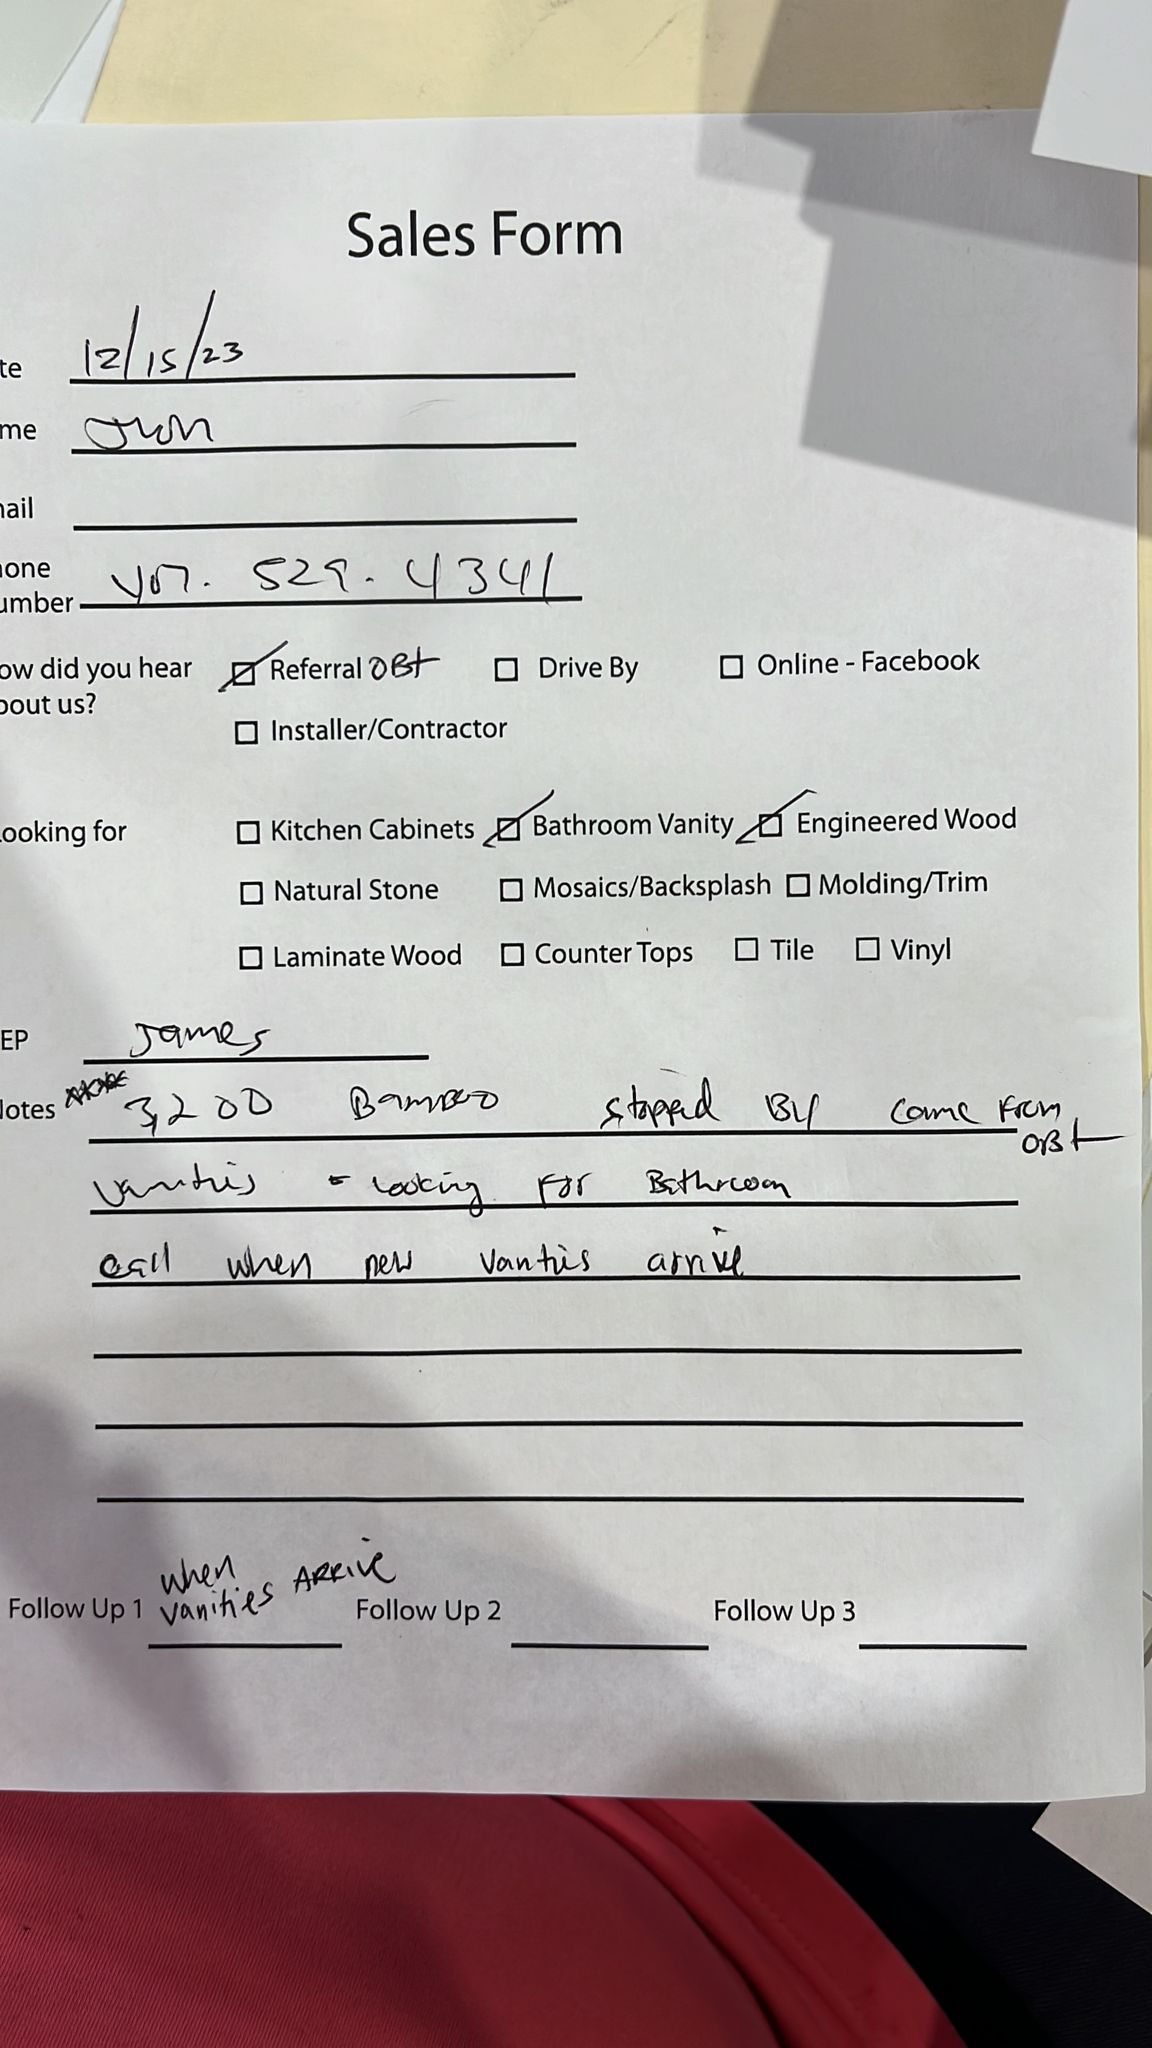 Sales Form
te 12/15/23
me
nail
none
umber 407. 529. 4341
ow did you hear ☑ Referral OBT ☐ Drive By ☐ Online - Facebook
bout us?
☐ Installer/Contractor
ooking for ☐ Kitchen Cabinets ☑ Bathroom Vanity ☑ Engineered Wood
☐ Natural Stone ☐ Mosaics/Backsplash ☐ Molding/Trim
☐ Laminate Wood ☐ Counter Tops ☐ Tile ☐ Vinyl
EP James
Notes 3,200 Bamboo stopped By came From
OBT
Vanities - Looking For Bathroom
call when new vanities arrive
when
Follow Up 1 vanities ARRIVE Follow Up 2 Follow Up 3